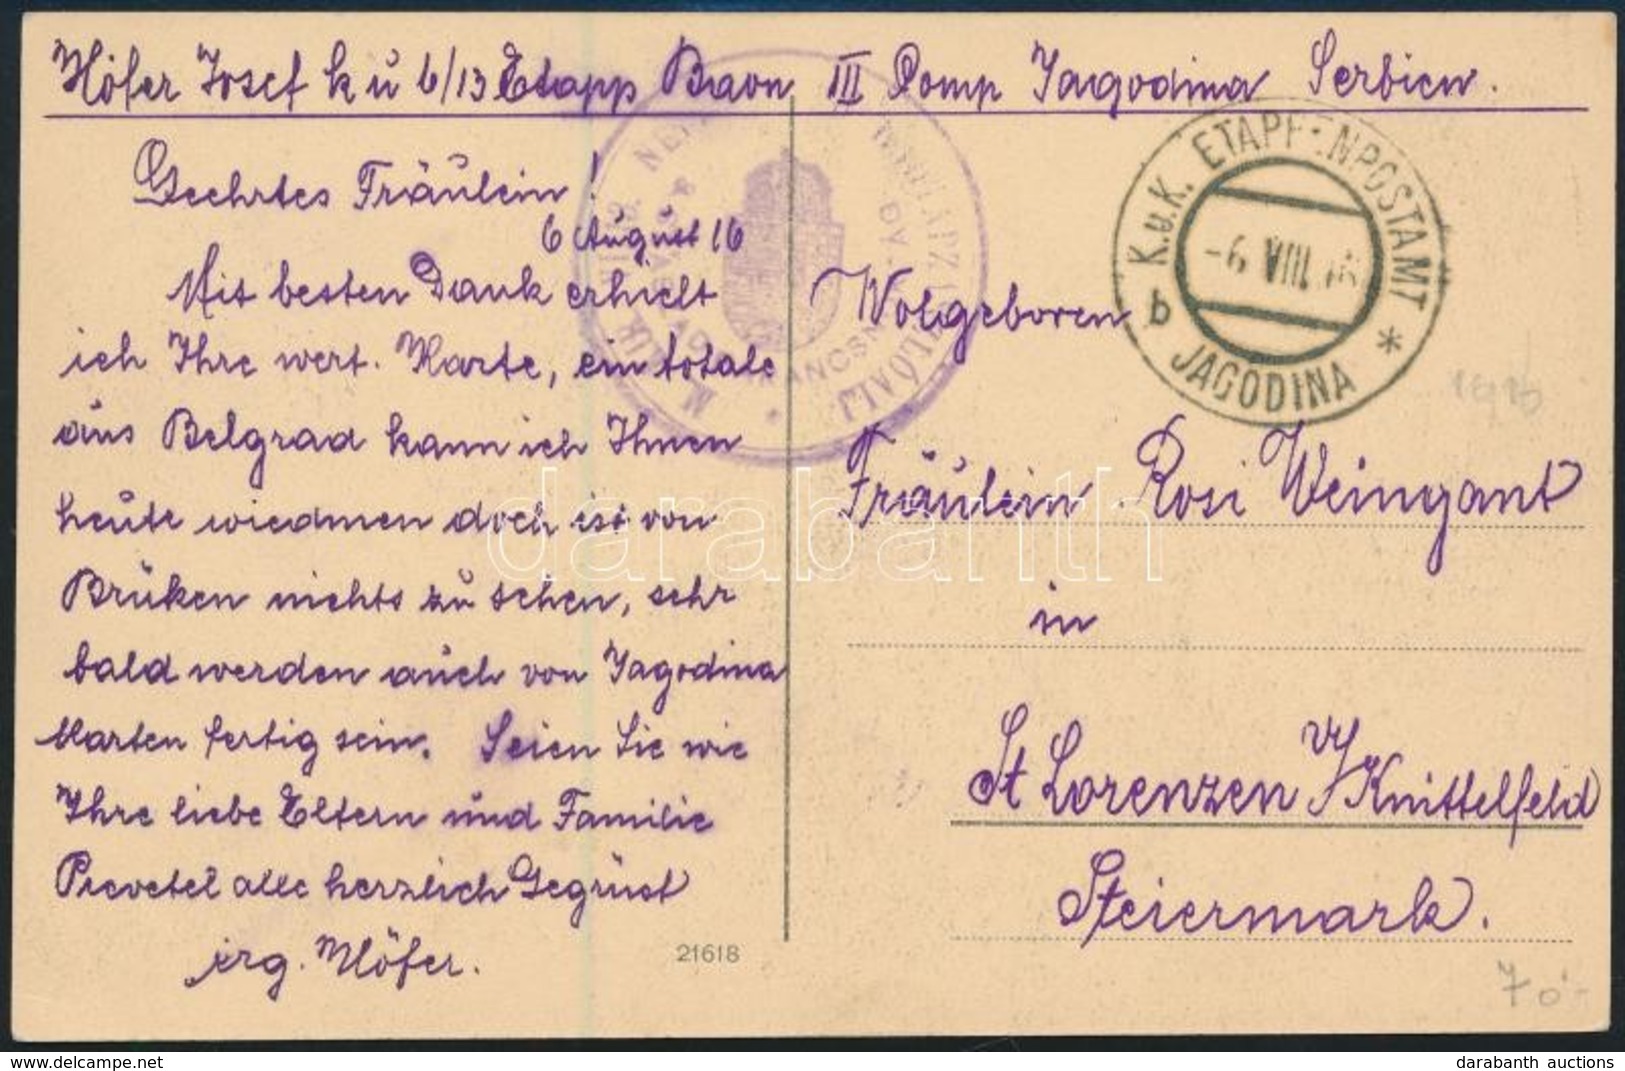 Höfer Josef k u 6/13 Etapp Baon III Comp Jagodina Serbien.
Geehrtes Fräulein!
6 August 16
Mit besten Dank erhielt
ich Ihre wert. Karte, ein totale
aus Belgrad kann ich Ihnen
heute wiedmen doch ist von
Brüken nichts zu sehen, sehr
bald werden auch von Jagodina
Karten fertig sein. Seien Sie wie
Ihre liebe Eltern und Familie
alle herzlich Gegrüst
erg. Höfer.
21618
K.u.K. ETAPPENPOSTAMT
b JAGODINA *
Wolgeboren
Fräulein Rosi Weingant
in
St Lorenzen b/Knittelfeld
Steiermark.
1916
70.-
darabanth
darabanth auctions